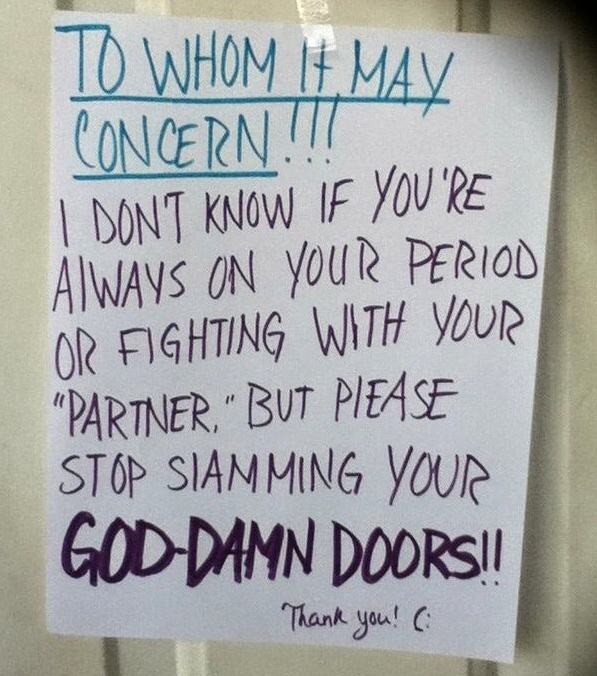 TO WHOM It MAY
CONCERN!!!
I DON'T KNOW IF YOU'RE
AlWAYS ON YOUR PERIOD
OR FIGHTING WITH YOUR
"PARTNER," BUT PlEASE
STOP SlAMMING YOUR
GOD-DAMN DOORS!!
Thank you! (: